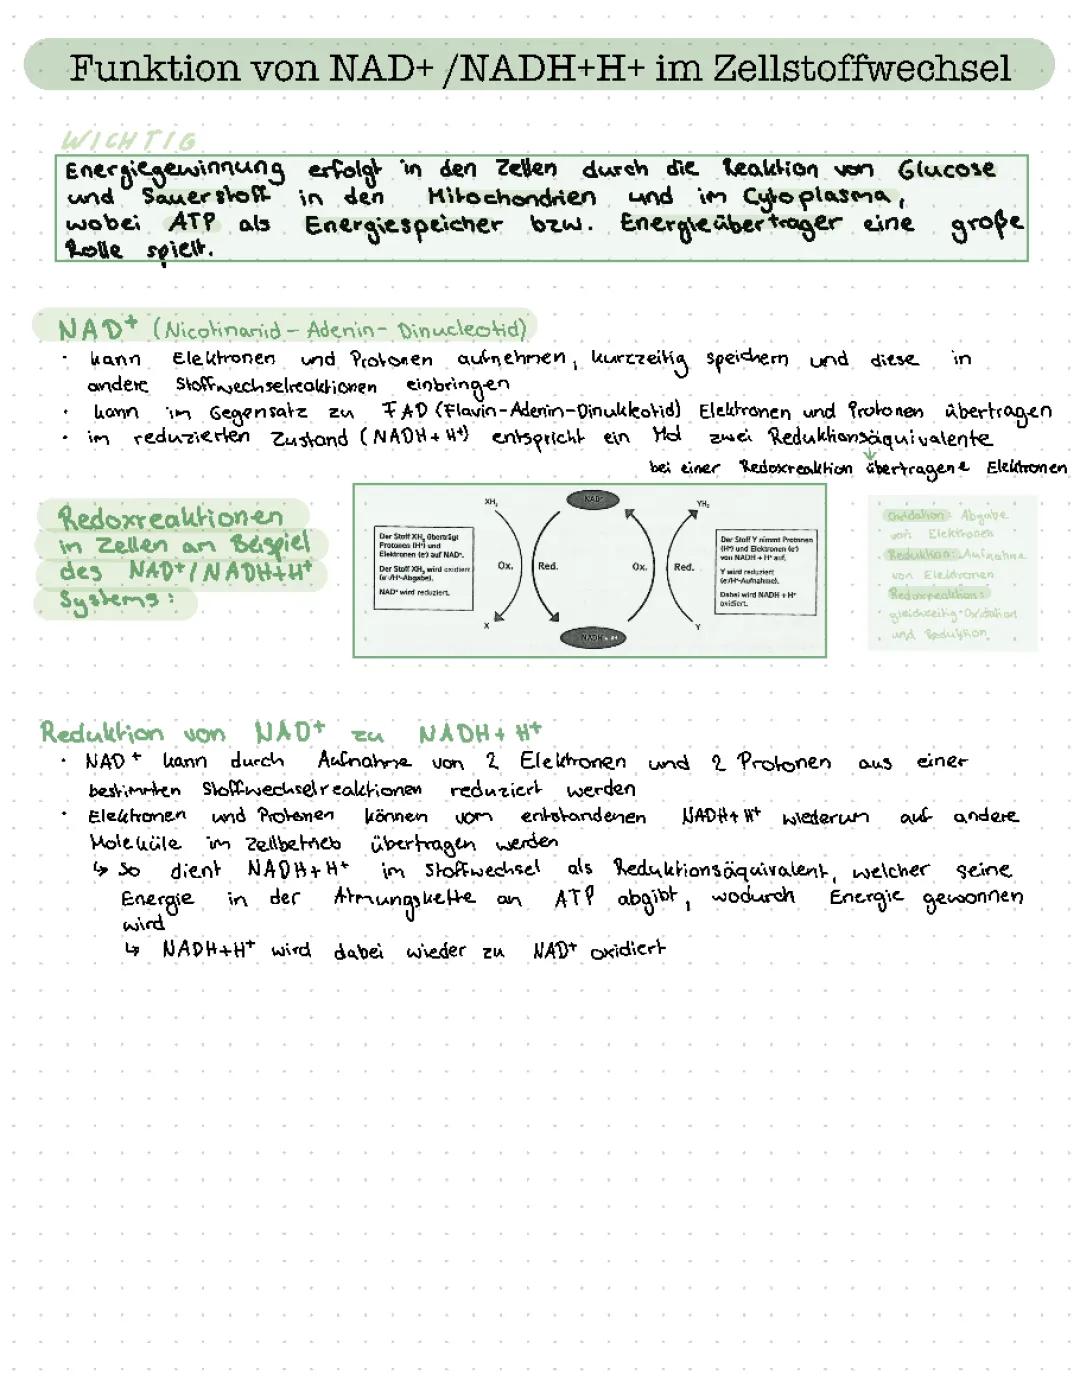 Funktion von NAD+ /NADH+H+ im Zellstoffwechsel
WICHTIG
Energiegewinnung erfolgt in den Zellen durch die Reaktion von Glucose
und Sauerstoff in den Mitochondrien und im Cytoplasma,
wobei ATP als Energiespeicher bzw. Energieüberträger eine große
Rolle spielt.
NAD⁺ (Nicotinamid-Adenin-Dinucleotid)
· kann Elektronen und Protonen aufnehmen, kurzzeitig speichern und diese in
andere Stoffwechselreaktionen einbringen
· kann im Gegensatz zu FAD (Flavin-Adenin-Dinukleotid) Elektronen und Protonen übertragen
· im reduzierten Zustand (NADH+H⁺) entspricht ein Mol zwei Reduktionsäquivalente
↓
bei einer Redoxreaktion übertragene Elektronen
Redoxreaktionen
in Zellen am Beispiel
des NAD⁺/NADH+H⁺
Systems:
Der Stoff XH₂ überträgt
Protonen (H⁺) und
Elektronen (e⁻) auf NAD⁺.
Der Stoff XH₂ wird oxidiert
(e⁻/H⁺-Abgabe).
NAD⁺ wird reduziert.
XH₂
Ox.
X
NAD⁺
Red.
Ox.
NADH + H⁺
YH₂
Red.
Y
Der Stoff Y nimmt Protonen
(H⁺) und Elektronen (e⁻)
von NADH + H⁺ auf.
Y wird reduziert
(e⁻/H⁺-Aufnahme).
Dabei wird NADH + H⁺
oxidiert.
Oxidation: Abgabe
von Elektronen
Reduktion: Aufnahme
von Elektronen
Redoxreaktion:
gleichzeitig Oxidation
und Reduktion
Reduktion von NAD⁺ zu NADH+H⁺
· NAD⁺ kann durch Aufnahme von 2 Elektronen und 2 Protonen aus einer
bestimmten Stoffwechselreaktionen reduziert werden
· Elektronen und Protonen können vom entstandenen NADH+H⁺ wiederum auf andere
Moleküle im Zellbetrieb übertragen werden
↳ So dient NADH+H⁺ im Stoffwechsel als Reduktionsäquivalent, welcher seine
Energie in der Atmungskette an ATP abgibt, wodurch Energie gewonnen
wird
↳ NADH+H⁺ wird dabei wieder zu NAD⁺ oxidiert